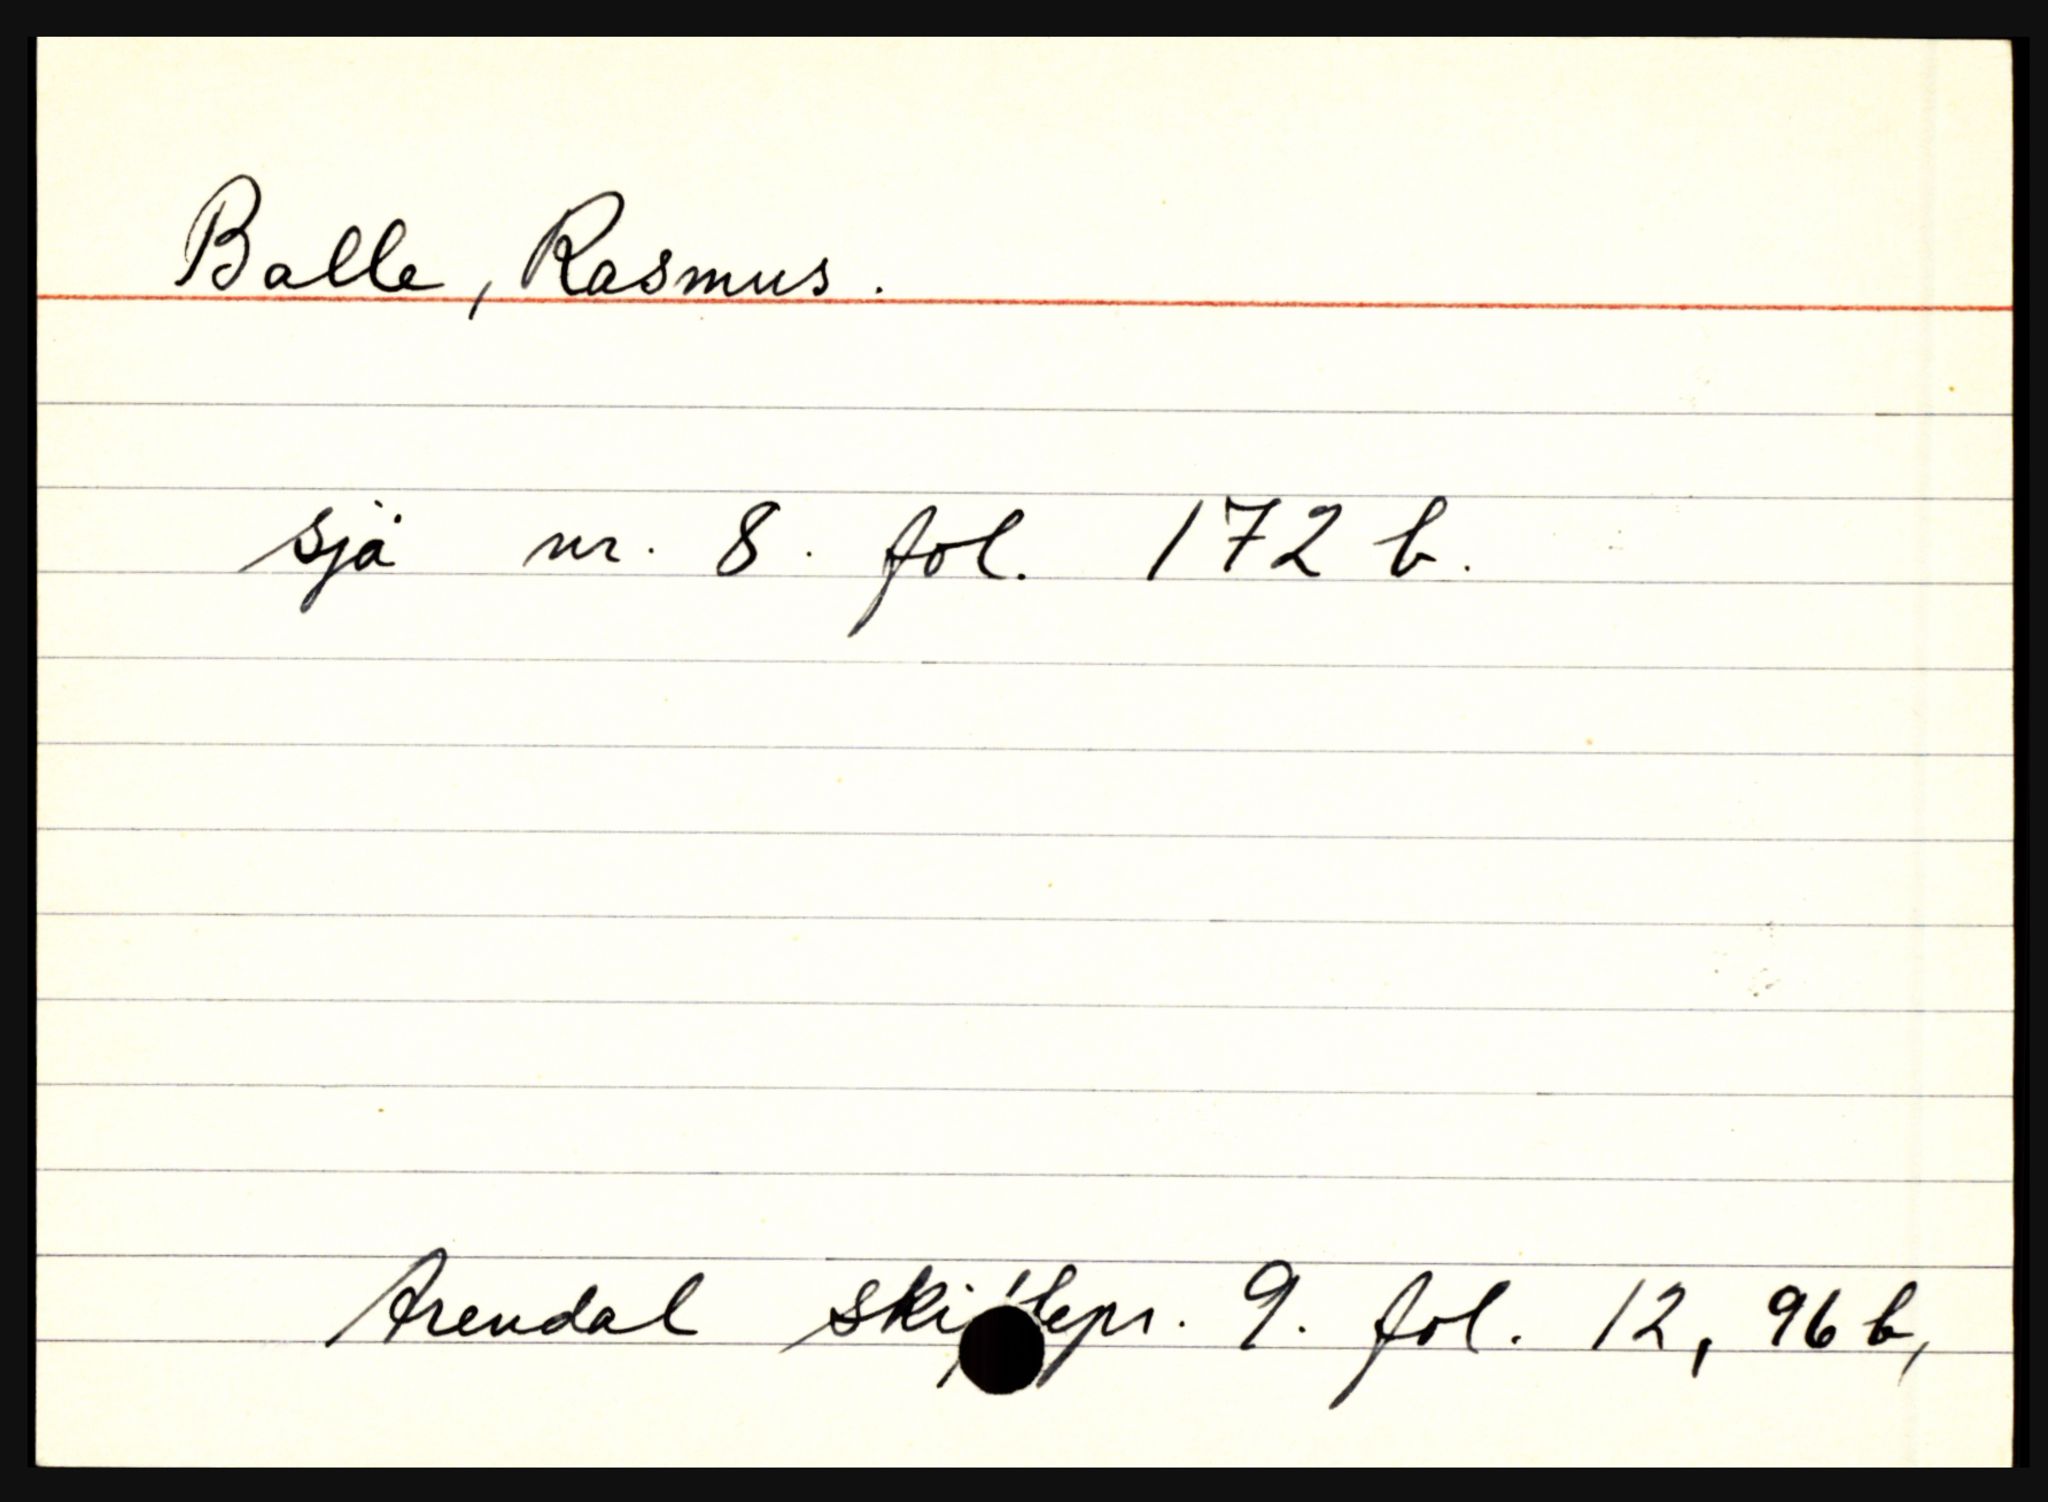 Balle, Rasmus.
sjå nr. 8. fol. 172 b.
Arendal skiftepr. 9. fol. 12, 96 b,